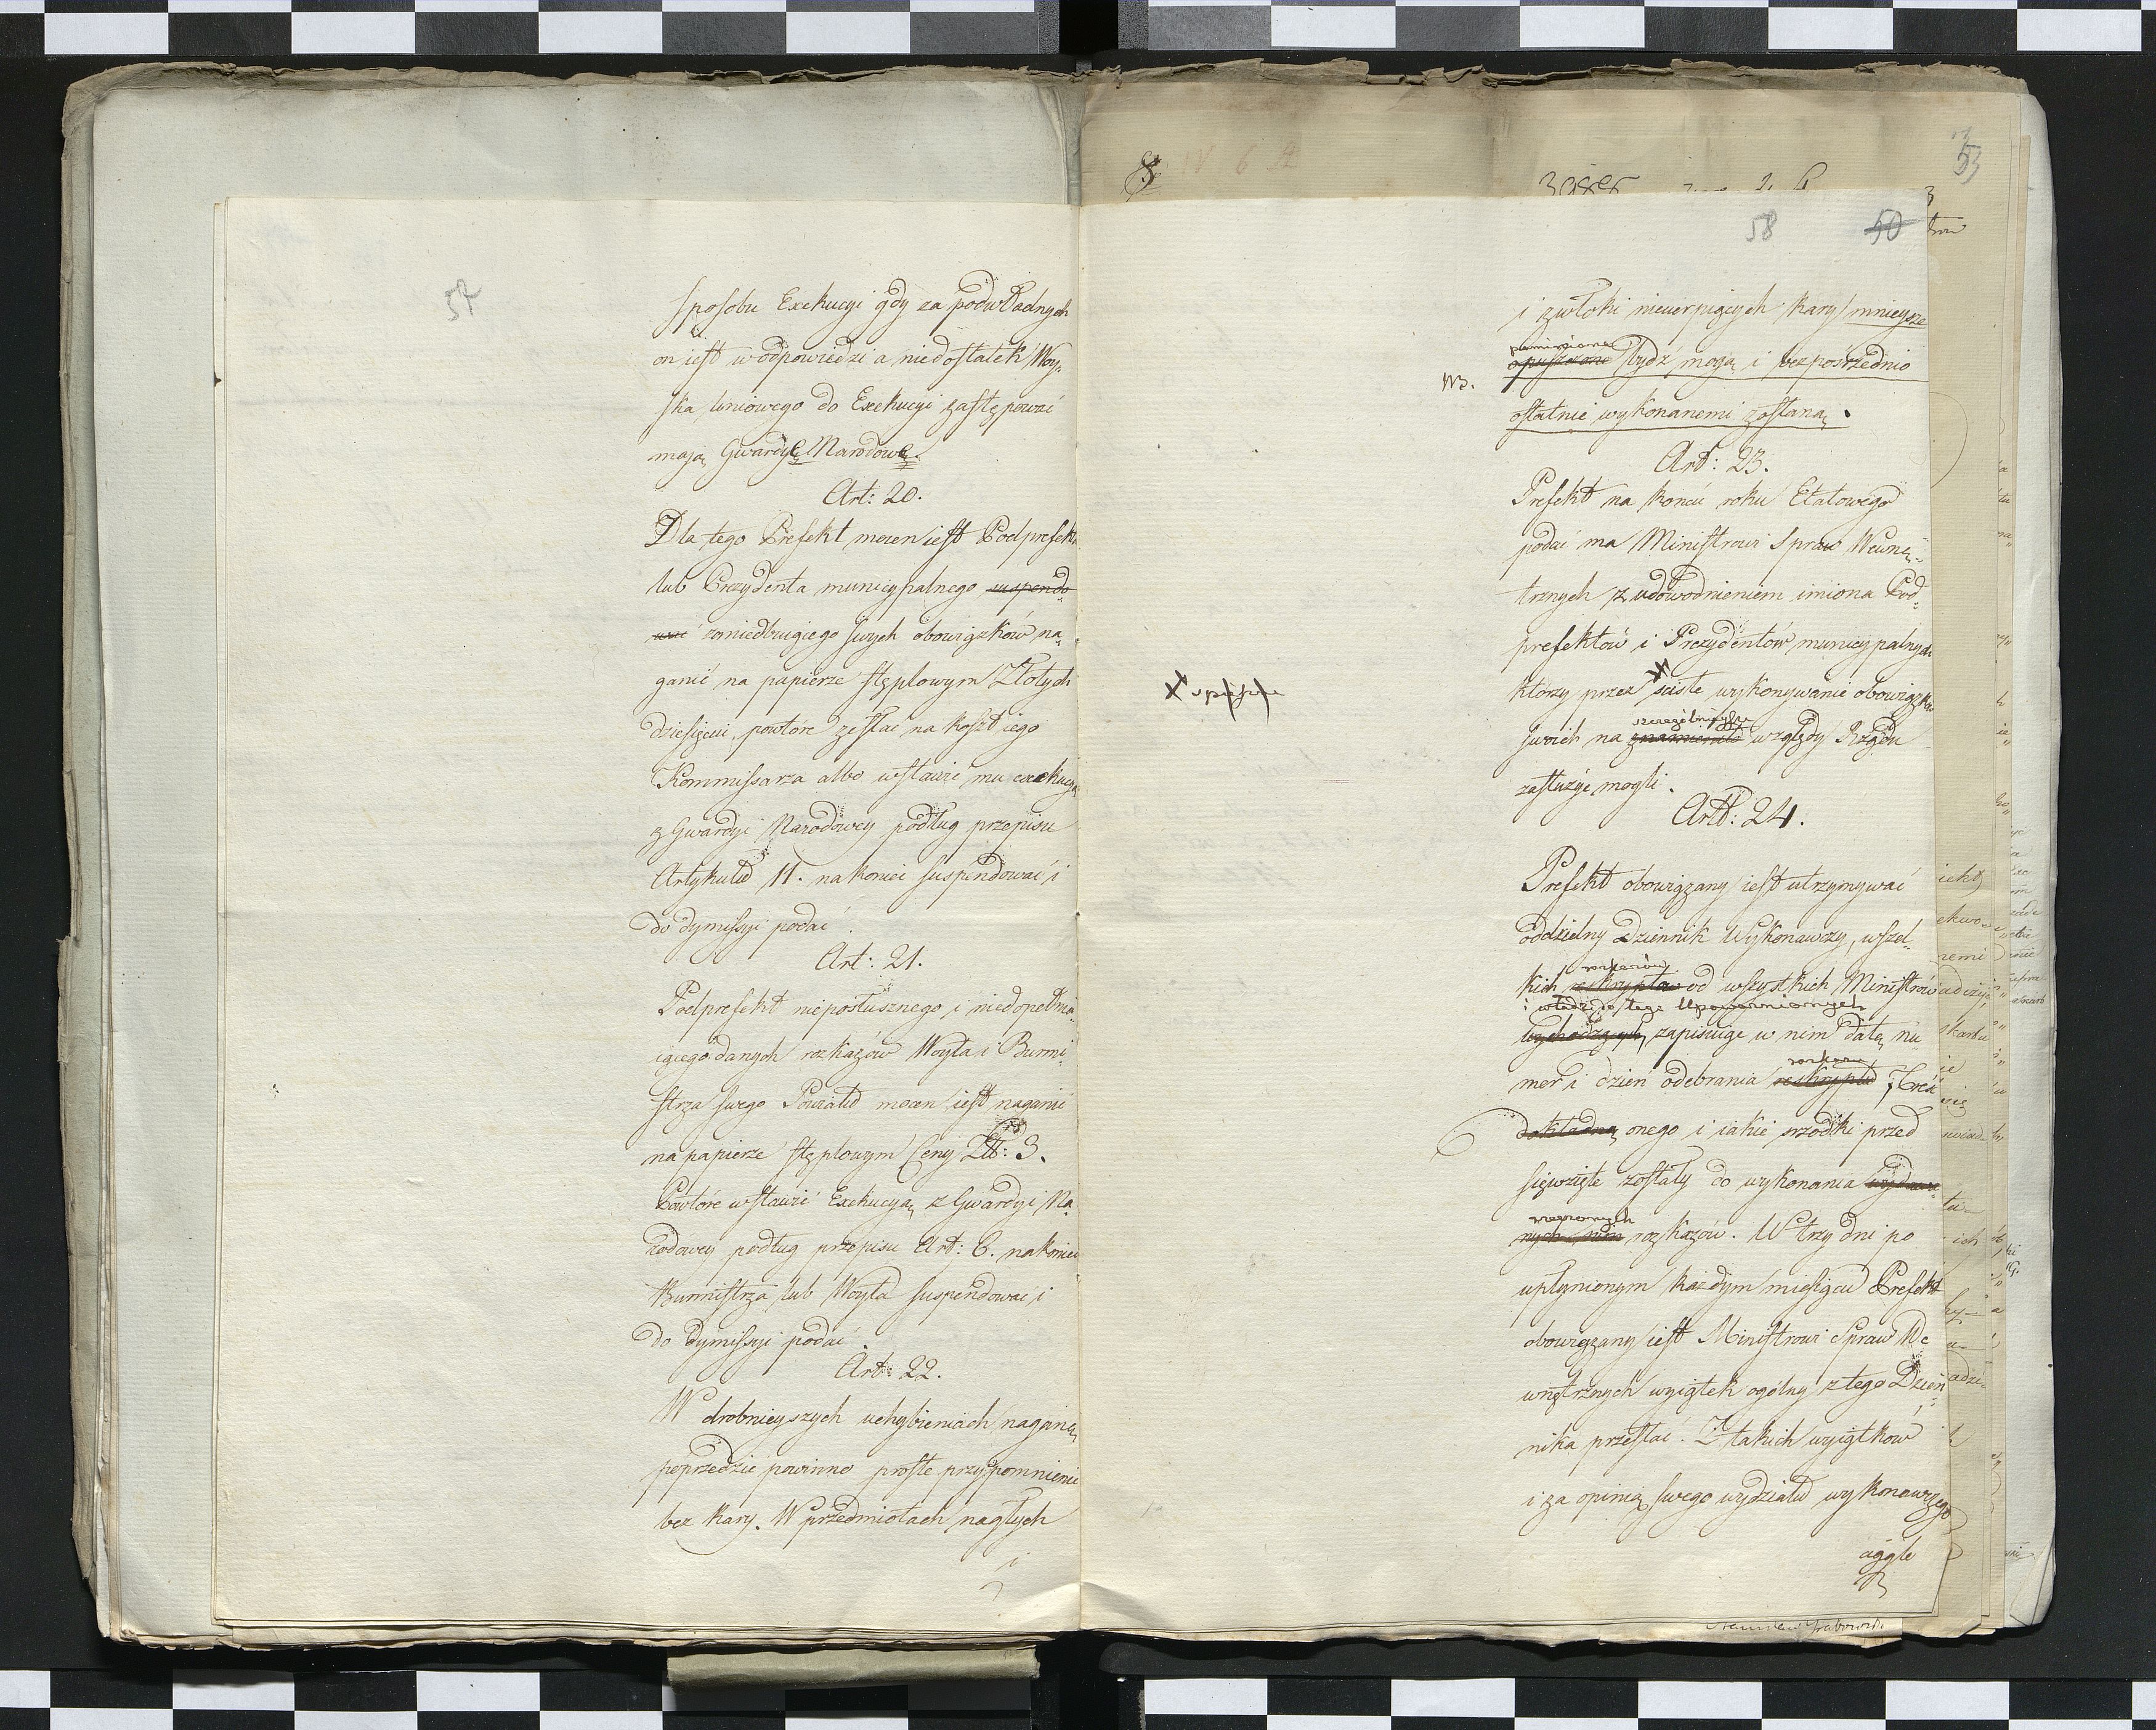 57
sposobu Exekucyi gdy za podwładnych
on iest w odpowiedzi a niedostatek Woy„
ska liniowego do Exekucyi zastępować
mają Gwardye Narodowe.
Art: 20.
Dla tego Prefekt mocen iest Podprefekta
lub Prezydenta municypalnego suspendo„
wać zaniedbuiącego swych obowiązków na„
ganić na papierze stęplowym Złotych
dziesięciu, powtóre zesłać na koszt iego
Kommissarza albo wstawić mu exekucyą
z Gwardyi Narodowey podług przepisu
Artykułu 11. nakoniec suspendować i
do dymissyi podać.
Art: 21.
Podprefekt nieposłusznego i niedopełnia„
iącego danych rozkazów Woyta i Burmi„
strza swego Powiatu mocen iest naganić
na papierze stęplowym Ceny Złt: 3.
Powtóre wstawić Exekucyą z Gwardyi Na„
rodowey podług przepisu Art: 6. nakoniec
Burmistrza lub Woyta suspendować i
do dymissyi podać.
Art: 22.
W drobnieyszych uchybieniach naganę
poprzedzić powinno proste przypomnienie
bez kary. W przedmiotach nagłych
i
8
53
58 50
i zwłoki niecierpiących kary mnieysze
pominione
opuszczone bydź mogą i bezpośrednio
NB.
ostatnie wykonanemi zostaną.
Art: 23.
Prefekt na końcu roku Etatowego
podać ma Ministrowi Spraw Wewnę„
trznych z udowodnieniem imiona Pod„
prefektów i Prezydentów municypalnych
którzy przez ścisłe wykonywanie obowiązków
X spieszne
szczególnieysze
swoich na znamienite względy Rządu
zasłużyć mogli.
Art: 24.
Prefekt obowiązany iest utrzymywać
oddzielny Dziennik Wykonawczy, wszel„
rozkazów
kich reskryptów od wszystkich Ministrów
i władz do tego Upoważnionych
wychodzących, zapisuiąc w nim datę nu„
rozkazu
mer i dzień odebrania reskryptu, treść
dokładną onego i iakie środki przed
sięwzięte zostały do wykonania wydawa„
rzeczonych
nych nim rozkazów. W trzy dni po
upłynionym każdym miesiącu Prefekt
obowiązany iest Ministrowi Spraw We
wnętrznych wyiątek ogólny z tego Dzien„
nika przesłać. Z takich wyiątków
i za opinią swego wydziału wykonawczego
ciągle